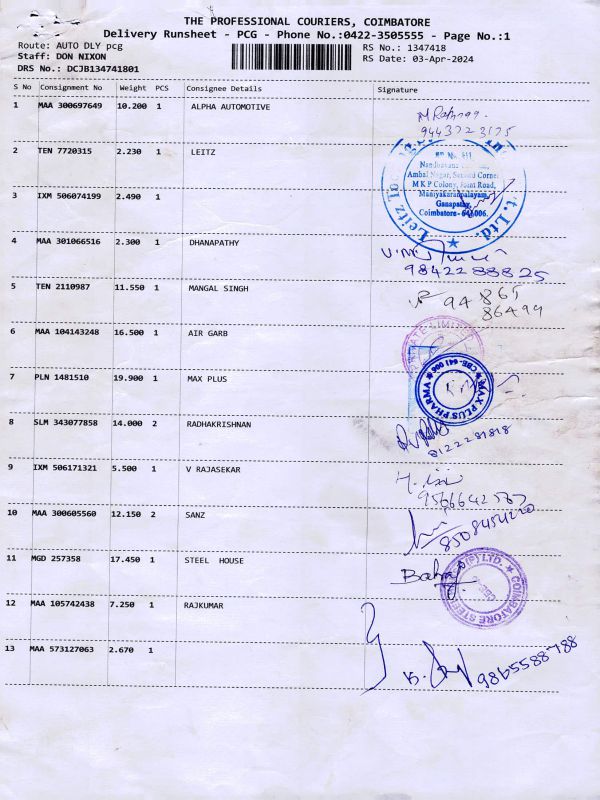 THE PROFESSIONAL COURIERS, COIMBATORE
Delivery Runsheet - PCG - Phone No.:0422-3505555 - Page No.:1
Route: AUTO DLY pcg RS No.: 1347418
Staff: DON NIXON RS Date: 03-Apr-2024
DRS No.: DCJB134741801
S No Consignment No Weight PCS Consignee Details Signature
1 MAA 300697649 10.200 1 ALPHA AUTOMOTIVE
2 TEN 7720315 2.230 1 LEITZ
Ambal Nagar, Second Corner
M K P Colony, Point Road,
Maniyakaranpalayam,
Ganapathy,
Coimbatore - 641 006.
3 IXM 506074199 2.490 1
4 MAA 301066516 2.300 1 DHANAPATHY
98422 88825
5 TEN 2110987 11.550 1 MANGAL SINGH
94865
86499
6 MAA 104143248 16.500 1 AIR GARB
7 PLN 1481510 19.900 1 MAX PLUS
MAX PLUS PHARMA ★ CBE- 641 006 ★
8 SLM 343077858 14.000 2 RADHAKRISHNAN
8122281818
9 IXM 506171321 5.500 1 V RAJASEKAR
10 MAA 300605560 12.150 2 SANZ
11 MGD 257358 17.450 1 STEEL HOUSE
12 MAA 105742438 7.250 1 RAJKUMAR
13 MAA 573127063 2.670 1
9865588788